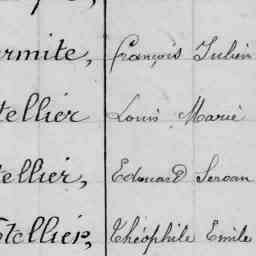 ermite, François Julien
tellier Louis Marie
ellier, Edouard
tellier, Théophile Emile